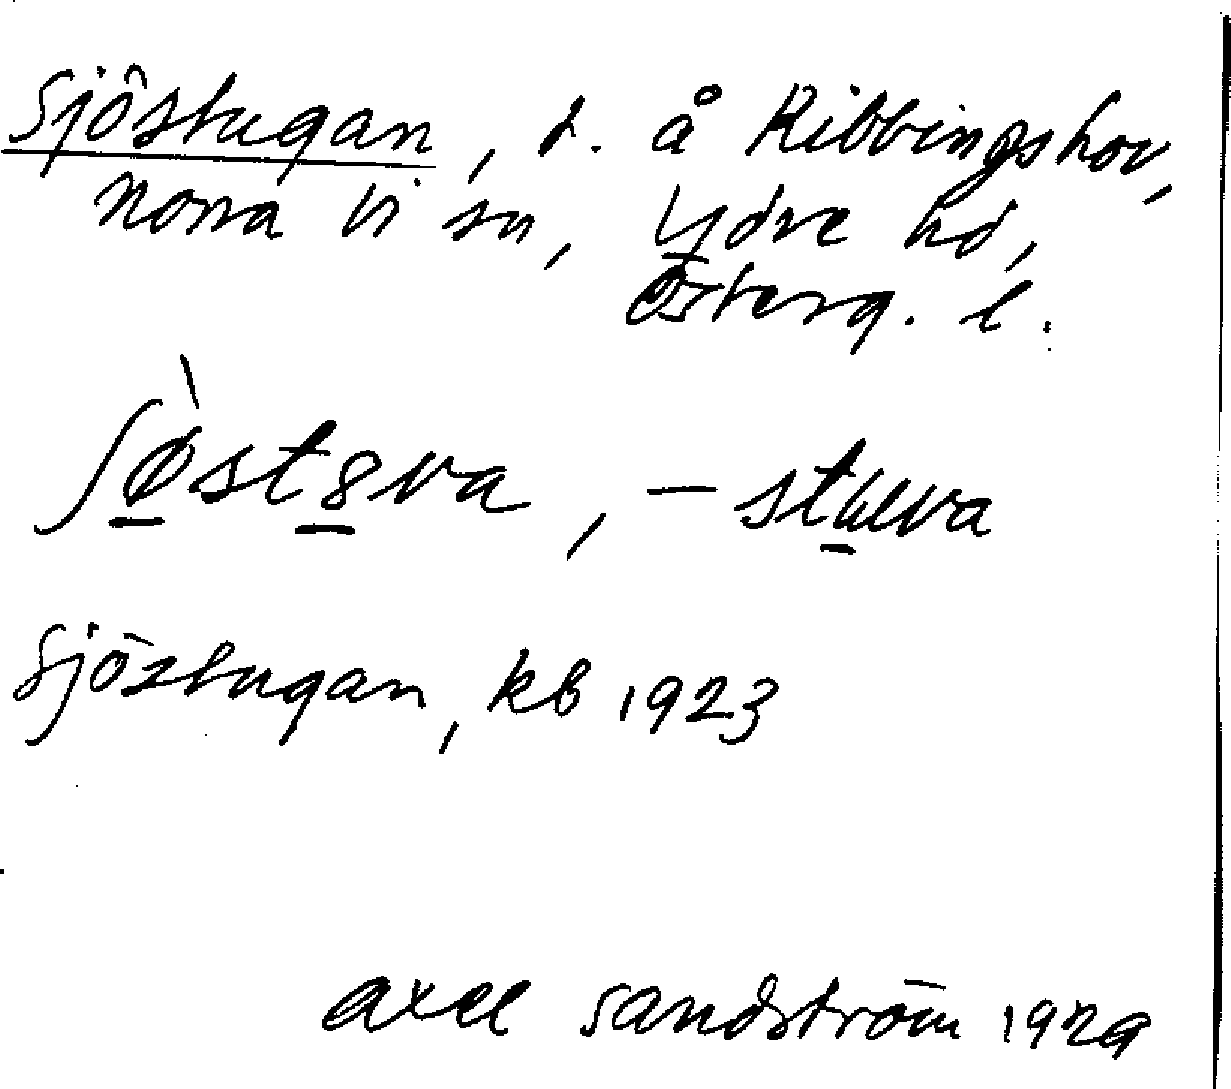 Sjöstugan, t. å Ribbingshov,
Norra Vi sn, Ydre hd,
Österg. l.
ʃø̀st8va, –stuva
Sjöstugan, kb 1923
Axel Sandström 1929